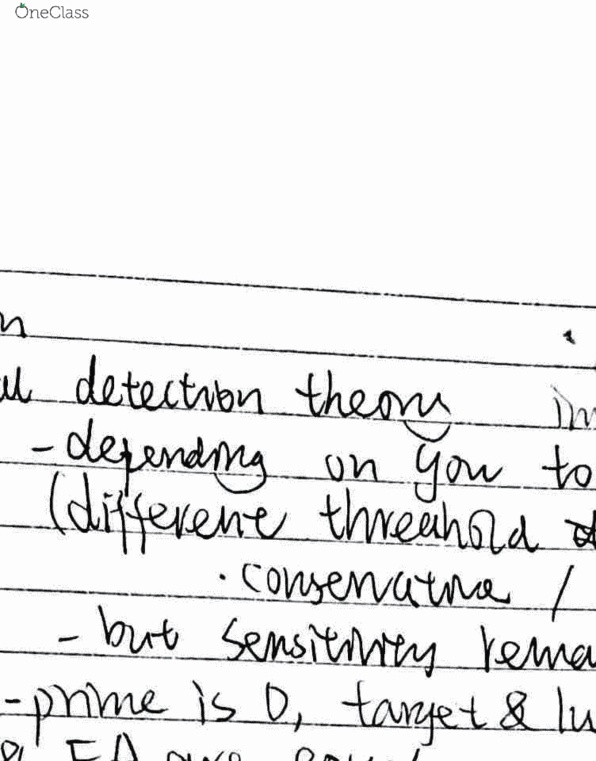 OneClass
n
al detection theory in
- depending on you to
(different threshold
· conservative /
- but sensitivity rema
-prime is 0, target & lu
& FA are equal